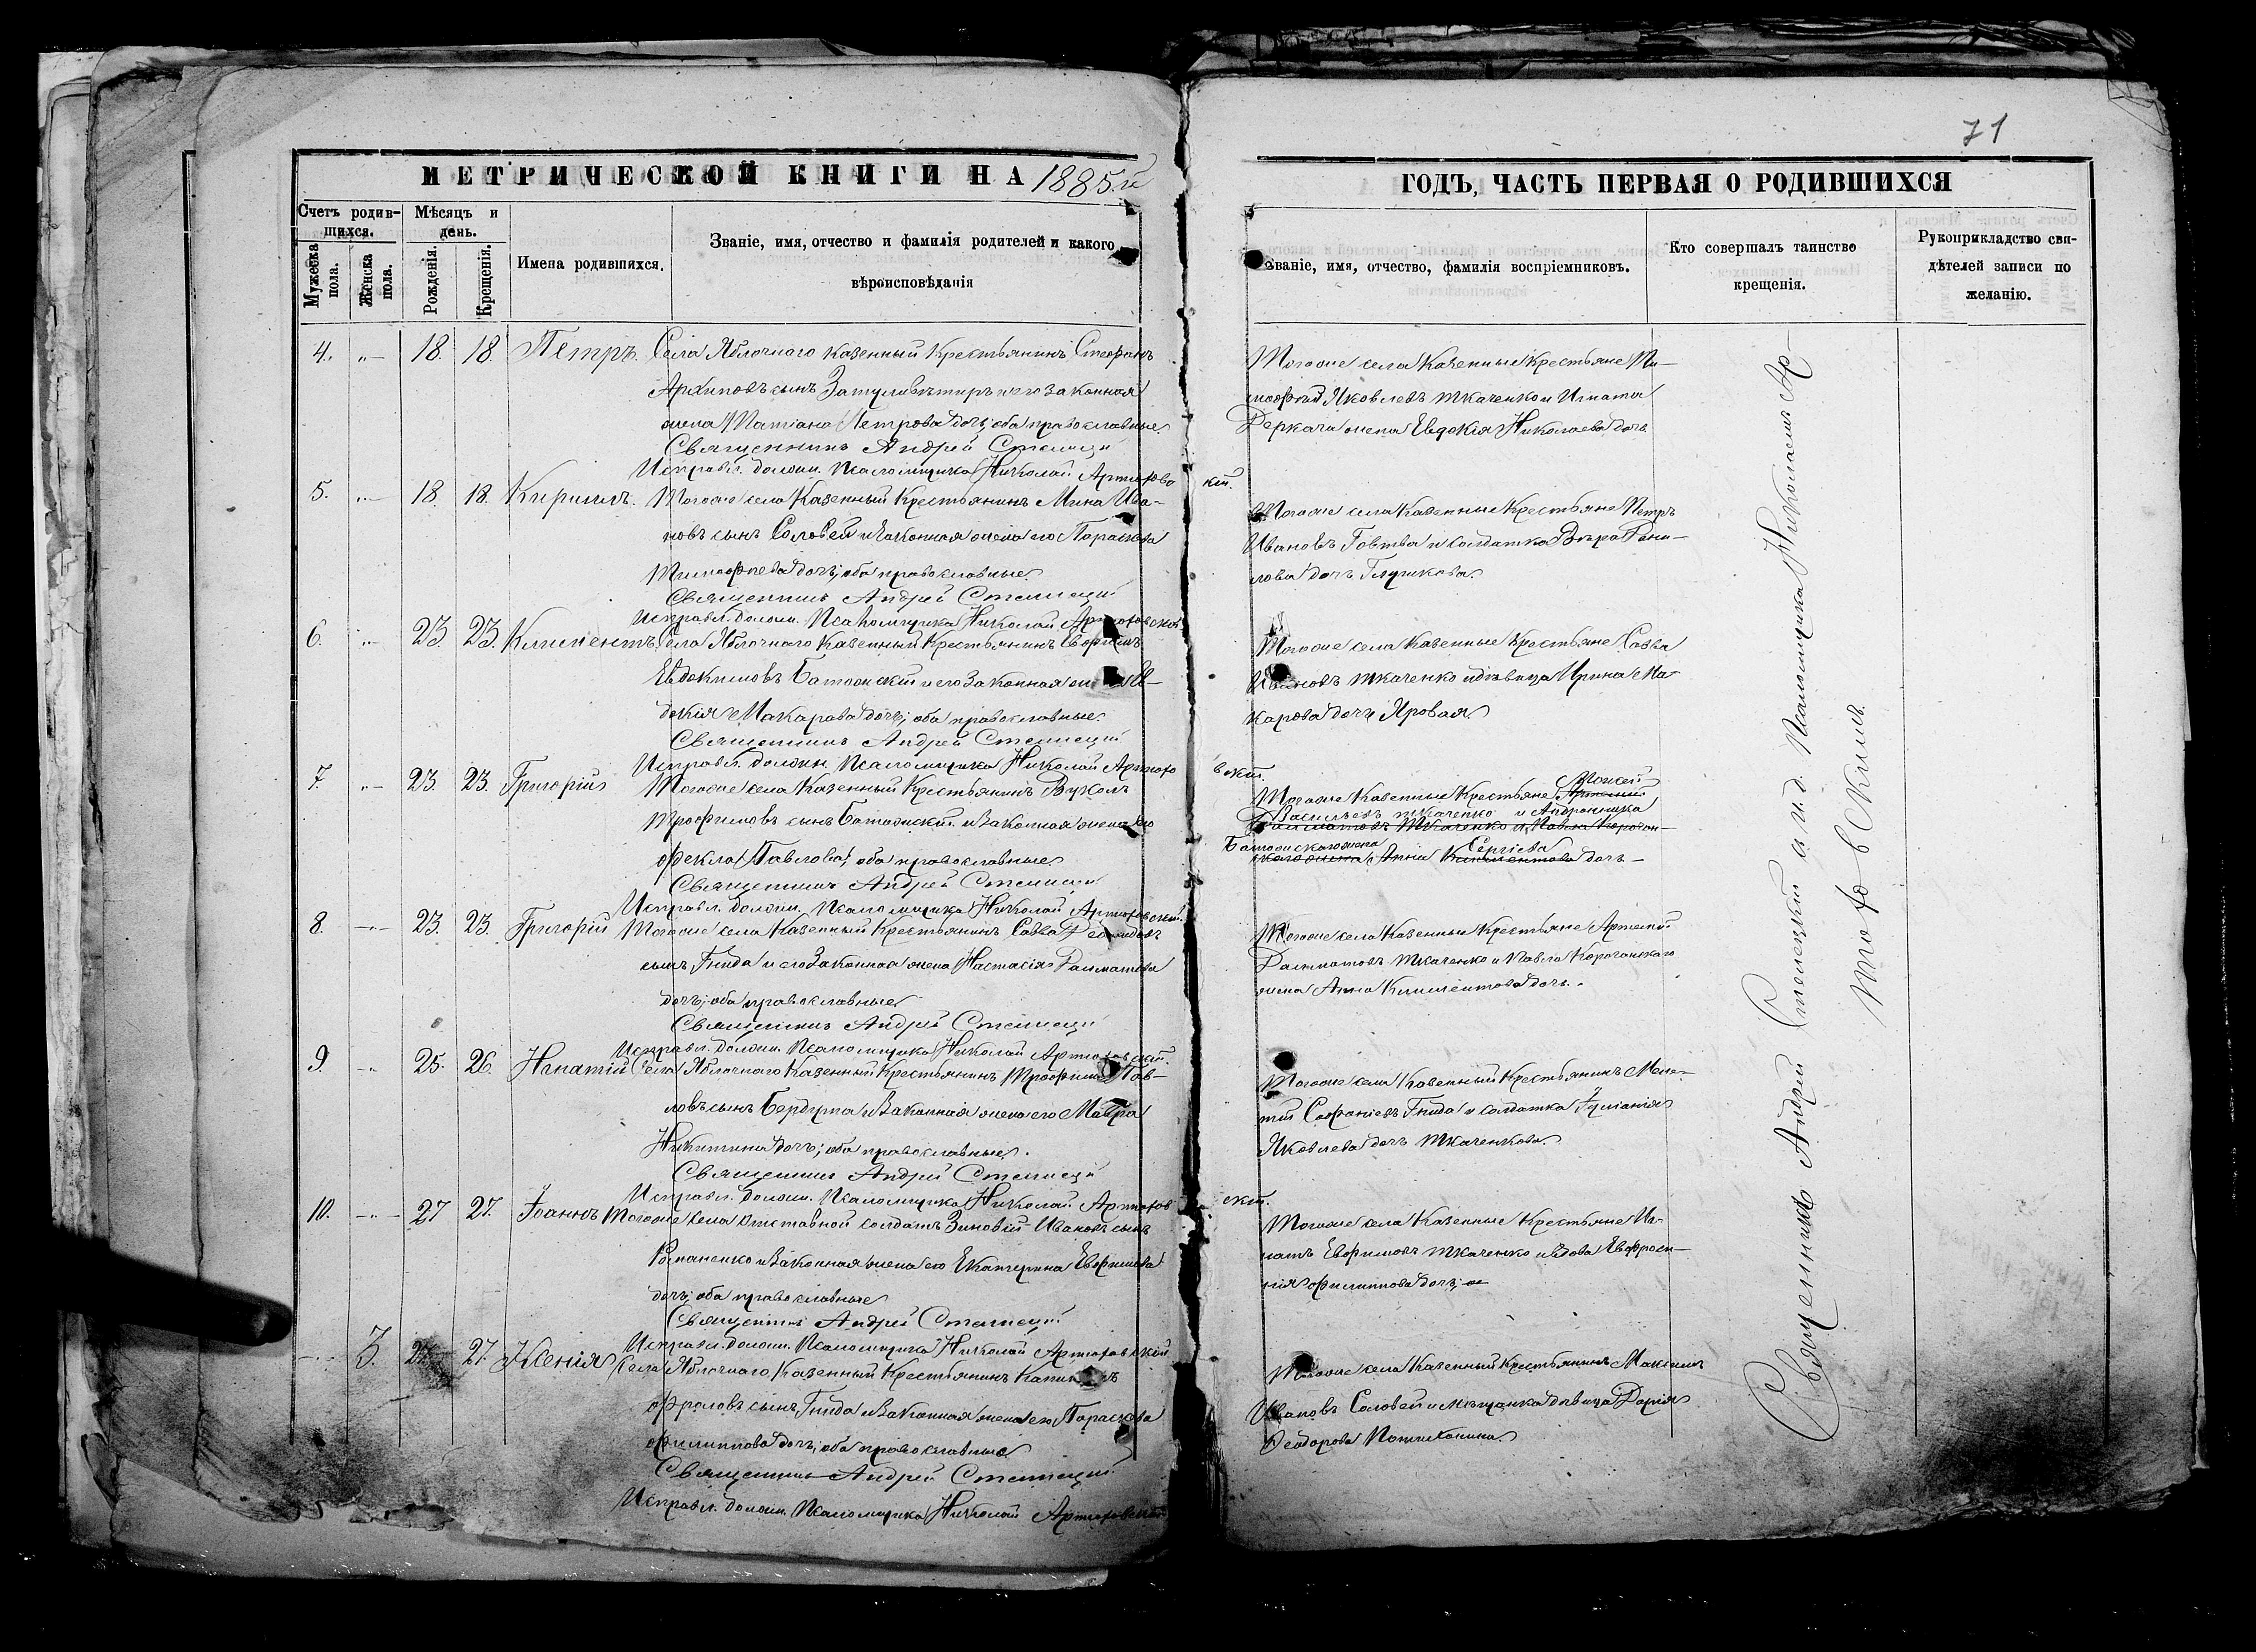 71
МЕТРИЧЕСКОЙ КНИГИ НА 1885й
Счетъ родив-
шихся.
Мѣсяцъ и
день.
Мужеска
пола.
Женска
пола.
Рожденія.
Крещенія.
Имена родившихся.
Званіе, имя, отчество и фамилія родителей и какого
вѣроисповѣданія
4. 18. 18. Петръ. Села Яблочного казенный крестьянинъ Стефанъ
Архиповъ сынъ и его законная
жена Татіана Петрова дочь; оба православные.
Священникъ Андрей
Исправл. должн. Псаломщика Николай Артюхов
скій.
5. 18. 18. Кириллъ. Тогоже села Казенный Крестьянинъ Мина Ива-
новъ сынъ Соловей и законная жена его Параскева
Тимофеева дочь; оба православные.
Священникъ Андрей
Исправл. должн. Псаломщика Николай Артюховскій
6. 23. 23. Климентъ. Села Яблочного Казенный Крестьянинъ Евфимъ
Евдокимовъ и его законная
докія Макарова дочь; оба православные.
Священникъ Андрей
Исправл. должн. Псаломщика Николай Артюхо
вскій.
7. 23. 23. Григорій Тогоже села Казенный Крестьянинъ Вуколъ
Трофимовъ сынъ и законная жена его
Фекла Павлова; оба православные
Священникъ Андрей
Исправл. должн. Псаломщика Николай Артюховскій.
8. 23. 23. Григорій Тогоже села Казенный Крестьянинъ Савва
сынъ Гнида и его Законная жена Настасія Далматова
дочь; оба православные
Священникъ Андрей
Исправл. должн. Псаломщика Николай Артюховскій.
9. 25. 26. Ипатій Села Яблочного Казенный Крестьянинъ Трофимъ Пав-
ловъ сынъ и Законная жена его Мавра
Никитина дочь; оба православные.
Священникъ Андрей
Исправл. должн. Псаломщика Николай Артюхов
скій.
10. 27 27. Іоаннъ Тогоже села отставной солдатъ Зиновій Ивановъ сынъ
Романенко и Законная жена его Екатерина Евфимова
дочь; оба православные
Священникъ Андрей
Исправл. должн. Псаломщика Николай Артюховскій
3. 27. 27. Ксенія Села Яблочного Казенный Крестьянинъ
Фроловъ сынъ Гнида и Законная жена его Параскева
Филиппова дочь; оба православные
Священникъ Андрей
Исправл. должн. Псаломщика Николай Артюховскій
ГОДЪ, ЧАСТЬ ПЕРВАЯ О РОДИВШИХСЯ
Званіе, имя, отчество, фамилія воспріемниковъ.
Кто совершалъ таинство
крещенія.
Рукоприкладство сви-
дѣтелей записи по
желанію.
Тогоже села Казенные Крестьяне Ти-
мофей Яковлевъ Ткаченко и Игната
Деркача жена Евдокія Николаева дочь
Тогоже села Казенные Крестьяне Петръ
Ивановъ Говтва и солдатка Вѣра Дани-
лова дочь
Тогоже села Казенные Крестьяне Савва
Ивановъ Ткаченко и дѣвица Ирина Ма-
карова дочь Яровая
Тогоже Казенные Крестьяне
Васильевъ Ткаченко и
жена Сергіева
Анна дочь
Тогоже села Казенные Крестьяне Артемій
Далматовъ Ткаченко и Павла Корочанскаго
жена Анна Климентова дочь.
Тогоже села Казенный Крестьянинъ Меле-
тій Софоніевъ Гнида и солдатка Іуліанія
Яковлева дочь Ткаченкова.
Тогоже села Казенные Крестьяне Иг-
натъ Евфимовъ Ткаченко и вдова Евфроси-
нія Филиппова дочь;
Тогоже села Казенный Крестьянинъ Максимъ
Ивановъ Соловей и Мѣщанка дѣвица Дарія
Ѳеодорова
Священникъ Андрей и. д. Псаломщика Николаемъ Ар-
тюховскимъ.